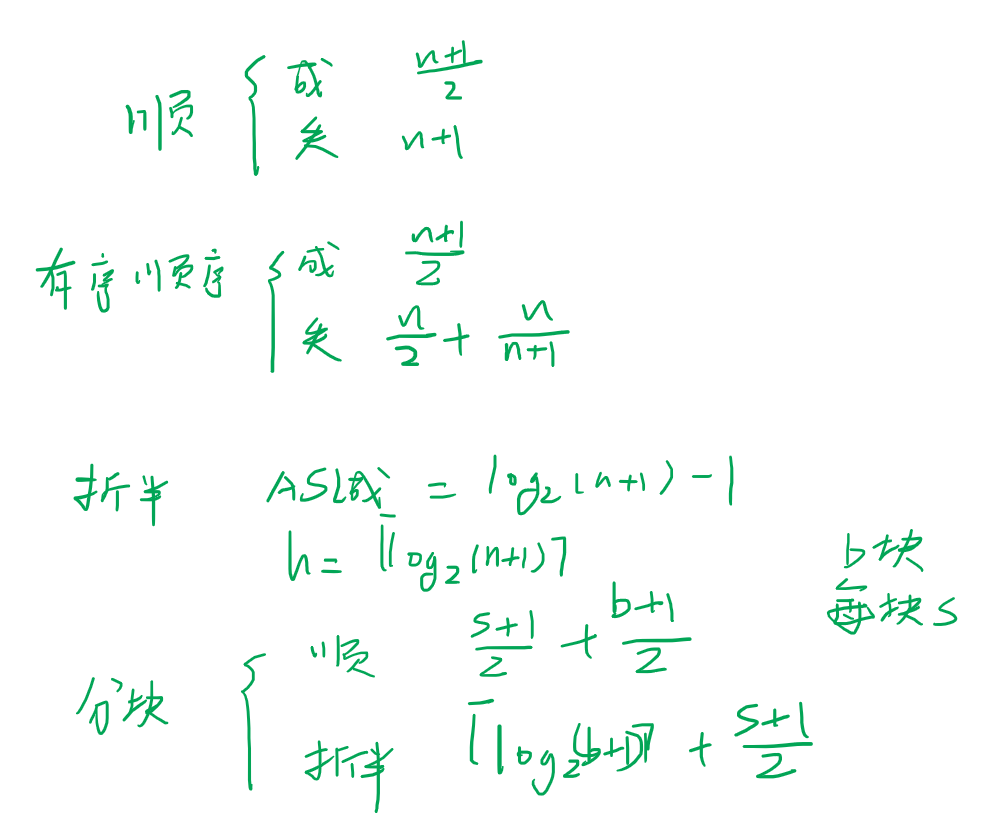 顺 { 成 \frac{n+1}{2}
失 n+1
有序顺序 { 成 \frac{n+1}{2}
失 \frac{n}{2} + \frac{n}{n+1}
折半 ASL成 = log₂(n+1) - 1
h = ⌈log₂(n+1)⌉
b块
每块S
分块 { 顺 \frac{s+1}{2} + \frac{b+1}{2}
折半 ⌈log₂(b+1)⌉ + \frac{s+1}{2}